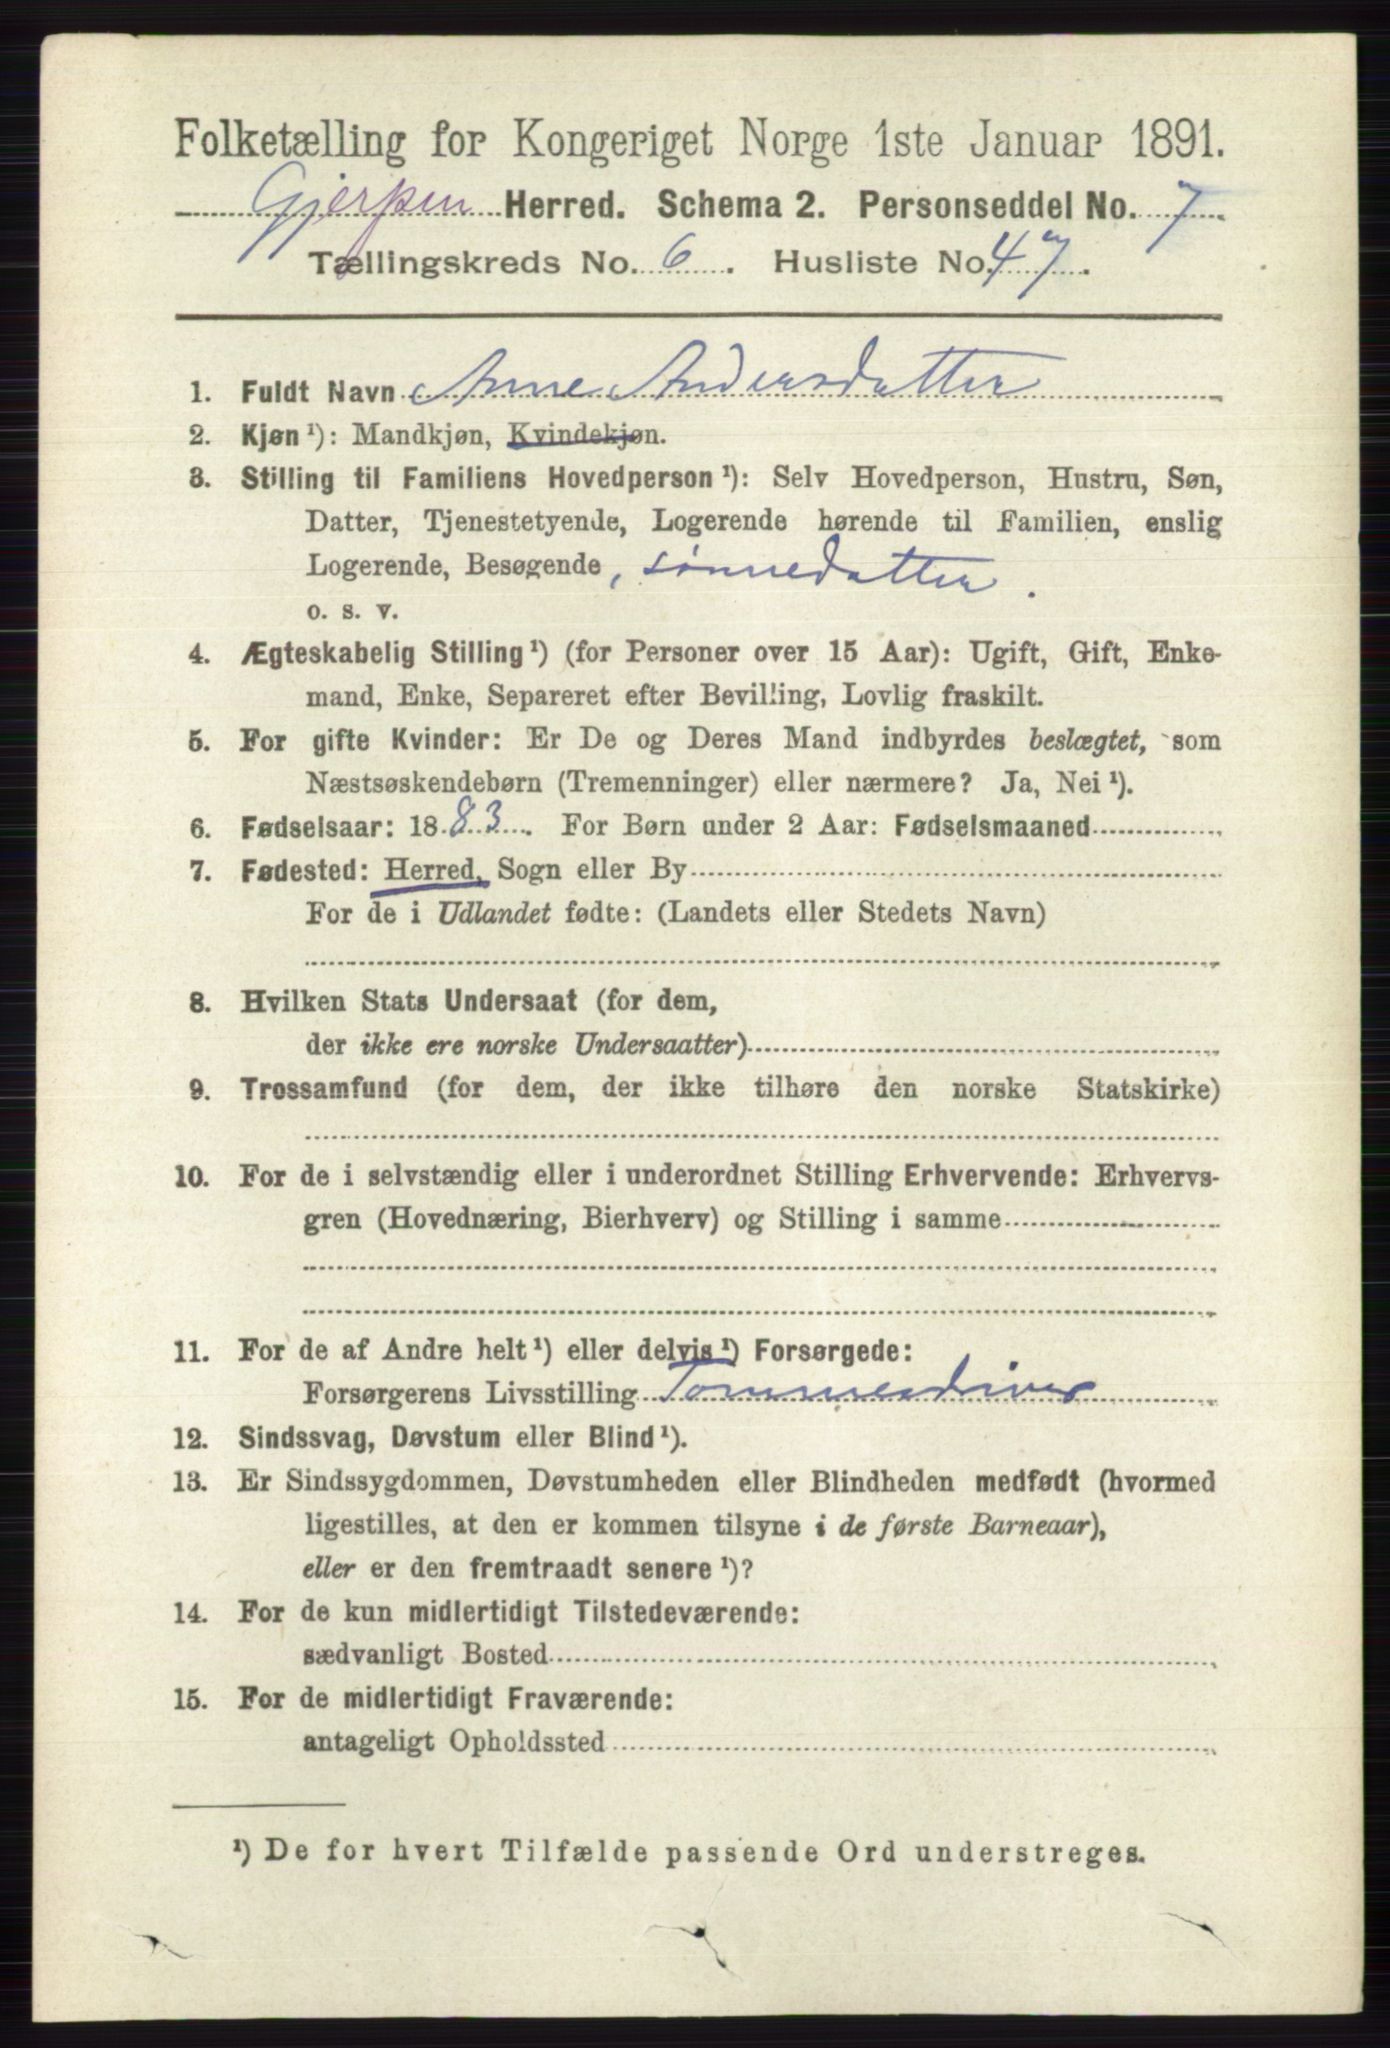 Folketælling for Kongeriget Norge 1ste Januar 1891.
Gjerpen Herred. Schema 2. Personseddel No. 7
Tællingskreds No. 6. Husliste No. 47.
1. Fuldt Navn Anne Andersdatter
2. Kjøn¹): Mandkjøn, Kvindekjøn.
3. Stilling til Familiens Hovedperson¹): Selv Hovedperson, Hustru, Søn,
Datter, Tjenestetyende, Logerende hørende til Familien, enslig
Logerende, Besøgende, sønnedatter.
o. s. v.
4. Ægteskabelig Stilling¹) (for Personer over 15 Aar): Ugift, Gift, Enke-
mand, Enke, Separeret efter Bevilling, Lovlig fraskilt.
5. For gifte Kvinder: Er De og Deres Mand indbyrdes beslægtet, som
Næstsøskendebørn (Tremenninger) eller nærmere? Ja, Nei¹).
6. Fødselsaar: 1883. For Børn under 2 Aar: Fødselsmaaned
7. Fødested: Herred, Sogn eller By
For de i Udlandet fødte: (Landets eller Stedets Navn)
8. Hvilken Stats Undersaat (for dem,
der ikke ere norske Undersaatter)
9. Trossamfund (for dem, der ikke tilhøre den norske Statskirke)
10. For de i selvstændig eller i underordnet Stilling Erhvervende: Erhvervs-
gren (Hovednæring, Bierhverv) og Stilling i samme
11. For de af Andre helt¹) eller delvis¹) Forsørgede:
Forsørgerens Livsstilling Tømmerdriver
12. Sindssvag, Døvstum eller Blind¹).
13. Er Sindssygdommen, Døvstumheden eller Blindheden medfødt (hvormed
ligestilles, at den er kommen tilsyne i de første Barneaar),
eller er den fremtraadt senere¹)?
14. For de kun midlertidigt Tilstedeværende:
sædvanligt Bosted
15. For de midlertidigt Fraværende:
antageligt Opholdssted
¹) De for hvert Tilfælde passende Ord understreges.